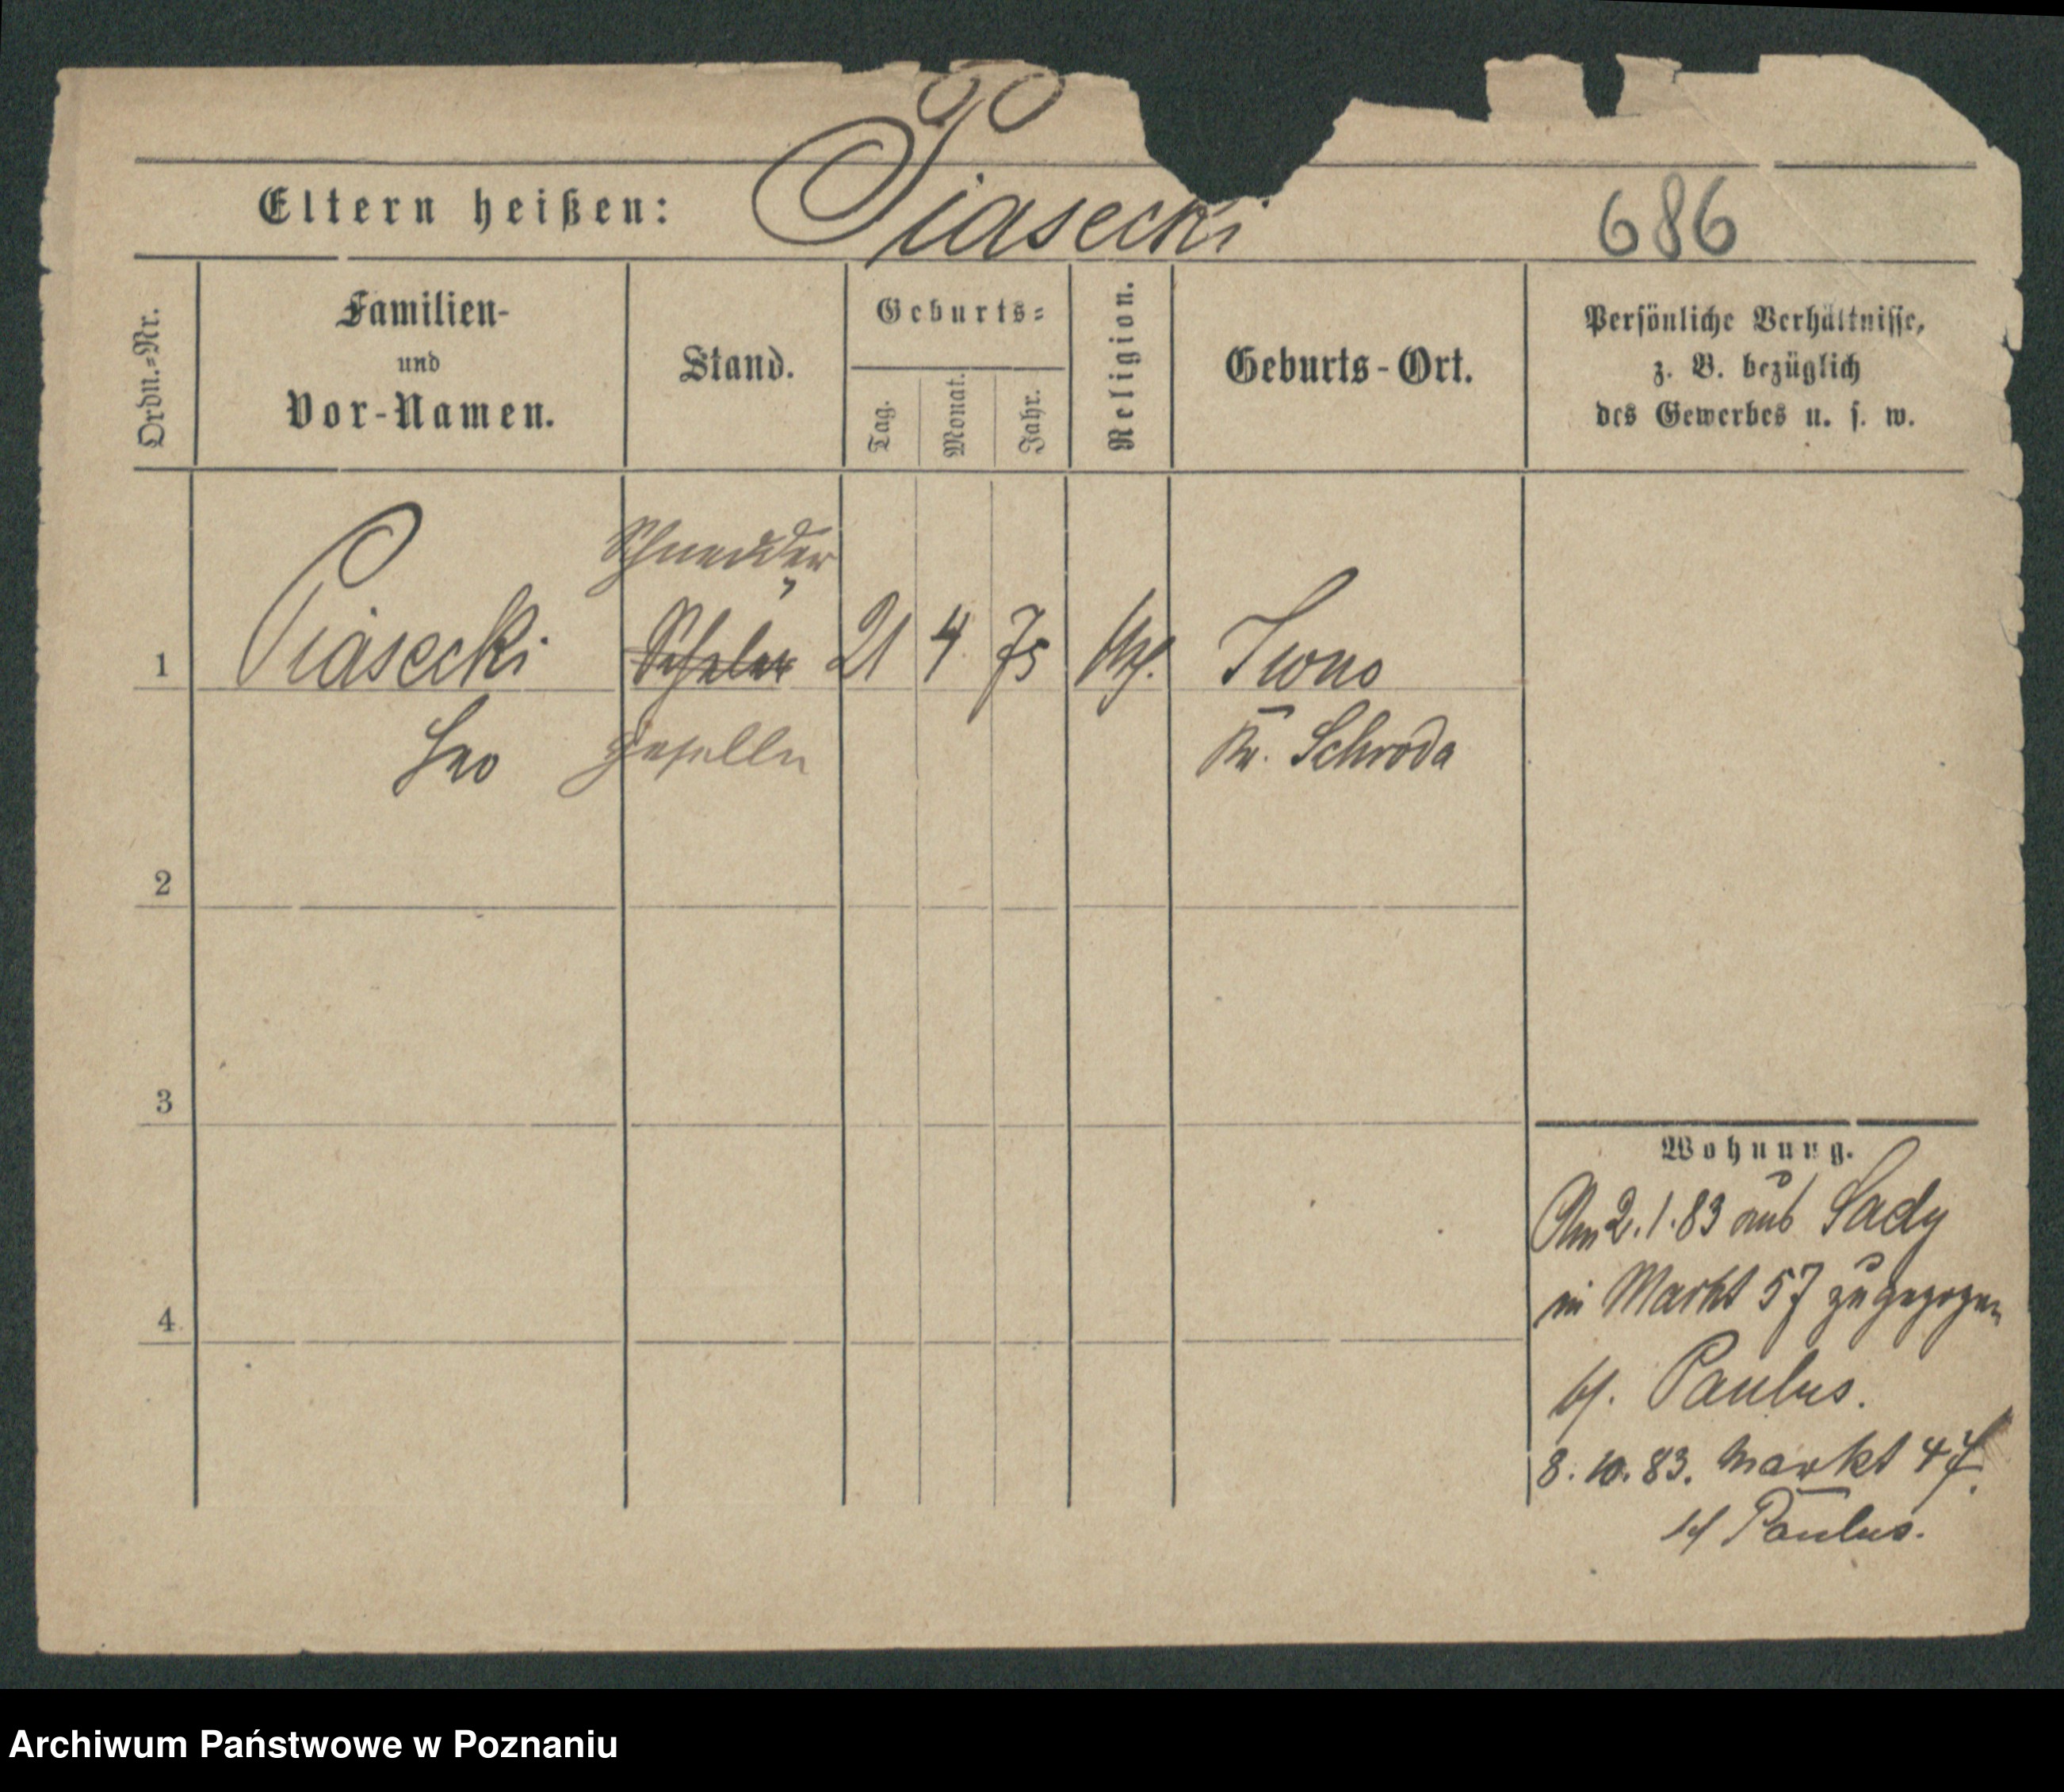 Eltern heißen: Piasecki 686
Ordn.-Nr.
Familien-
und
Vor-Namen.
Stand.
Geburts-
Tag.
Monat.
Jahr.
Religion.
Geburts-Ort.
Persönliche Verhältnisse,
z. B. bezüglich
des Gewerbes u. s. w.
Schneider
1 Piasecki Schüler 21 4 75 Iwno
Leo geselle Kr. Schroda
2
3
4
Wohnung.
Am 2.1.83 aus Sady
in Markt 57 zugezogen
bei Paulus.
8.10.83. Markt 47.
bei Paulus.
Archiwum Państwowe w Poznaniu